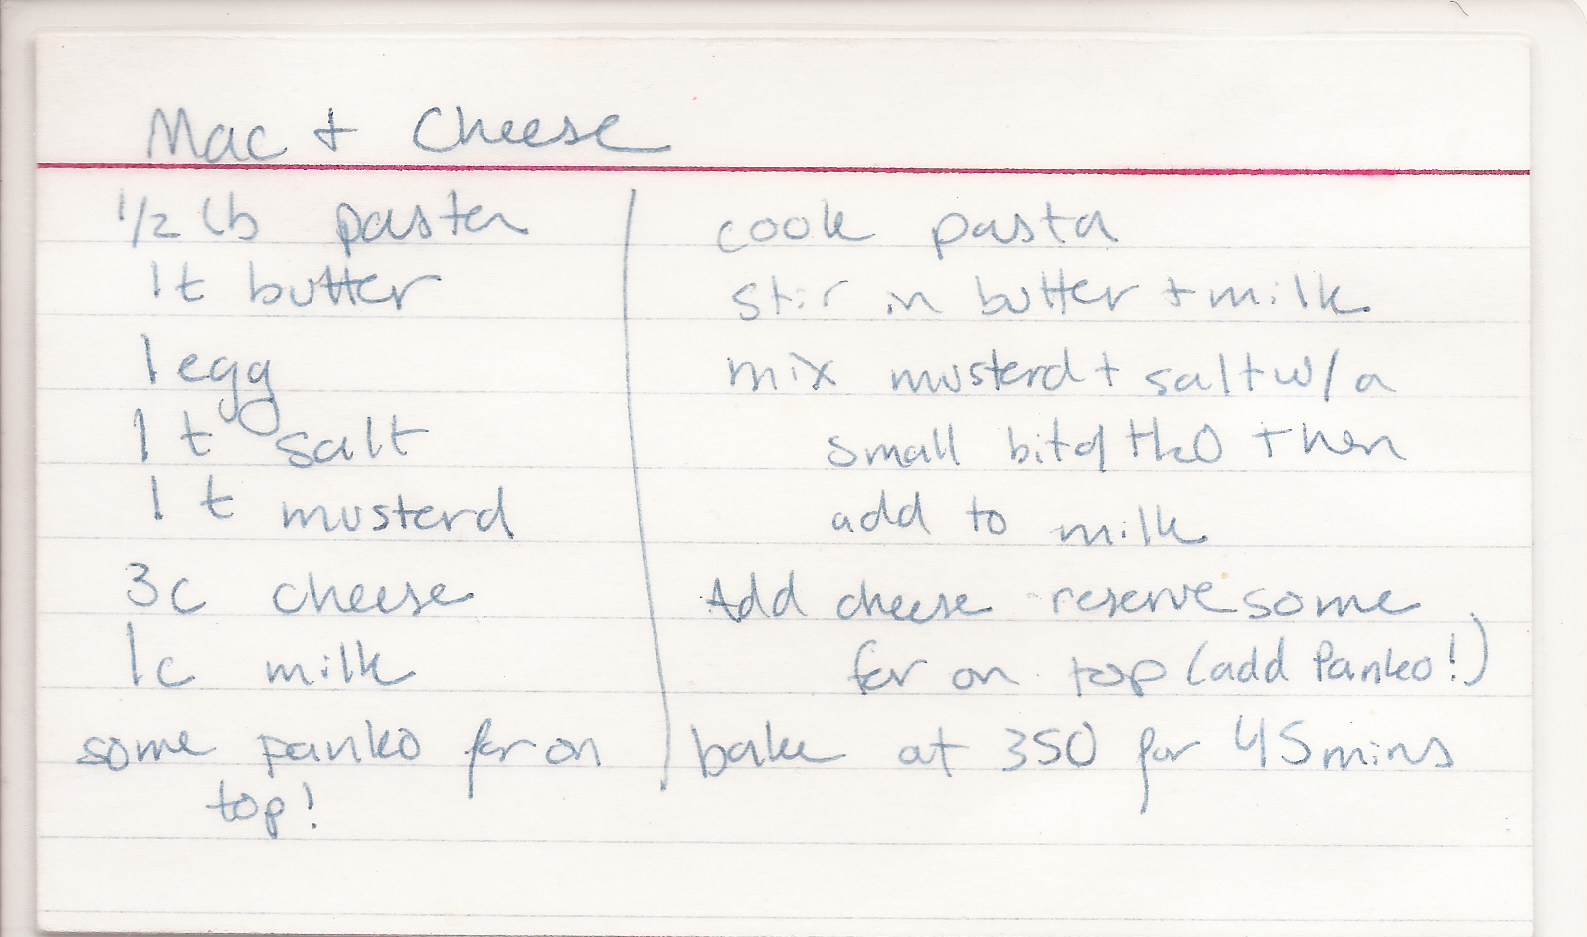 Mac + Cheese
1/2 lb pasta
1 t butter
1 egg
1 t salt
1 t musterd
3c cheese
1c milk
some panko for on
top!
cook pasta
stir in butter + milk
mix musterd + salt w/ a
small bit of H2O then
add to milk
Add cheese - reserve some
for on top (add Panko!)
bake at 350 for 45 mins